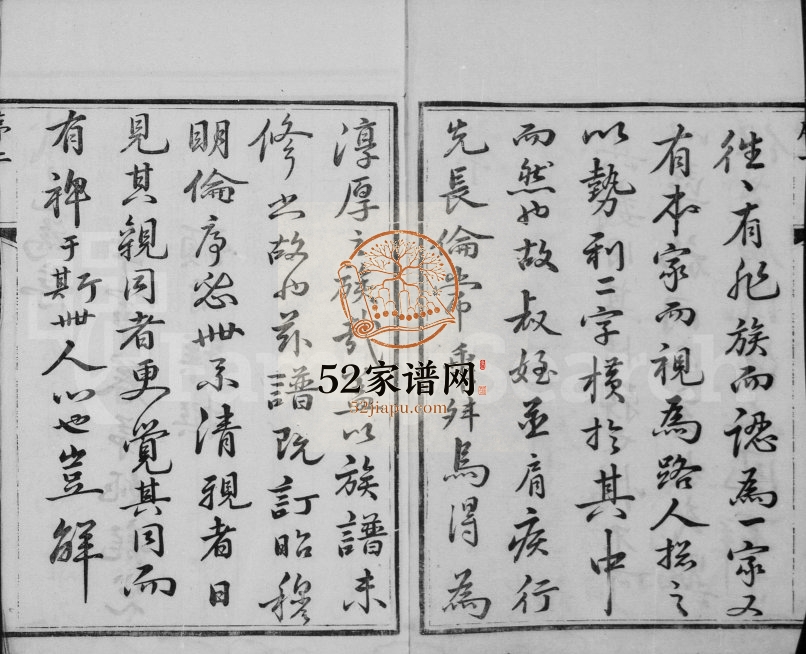 往〻有非族而認為一家又
有本家而視為路人揔之
以勢利二字橫扵其中
而然也故叔姪並肩疾行
先長倫常乖舛烏得為
淳厚之族哉盖以族譜未
修之故也茲譜既訂昭穆
明倫序悉世系清親者日
見其親同者更覺其同而
有裨于世人心也豈鮮
52家谱网
52jiapu.com